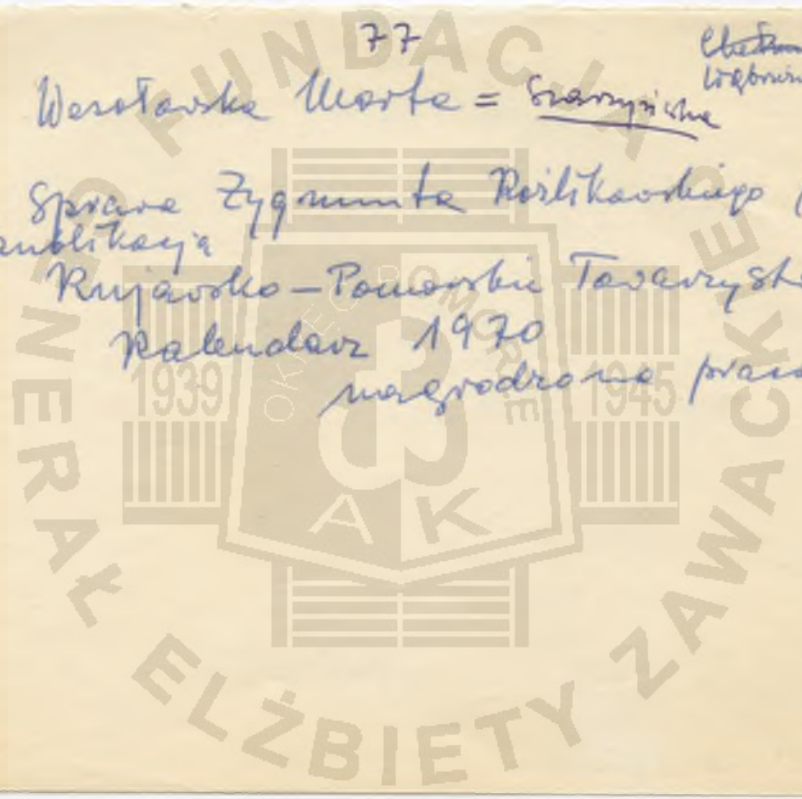 77
Wąbrzeźn
Wesołowska Marta = Szarzyńska
Sprawa Zygmunta Roślikowskiego (
publikacja
Kujawsko-Pomorskie Towarzyst
Kalendarz 1970
nagrodzona praca
FUNDACJA GENERAŁ ELŻBIETY ZAWACKIEJ
OKRĘG POMORZE
1939
1945
AK